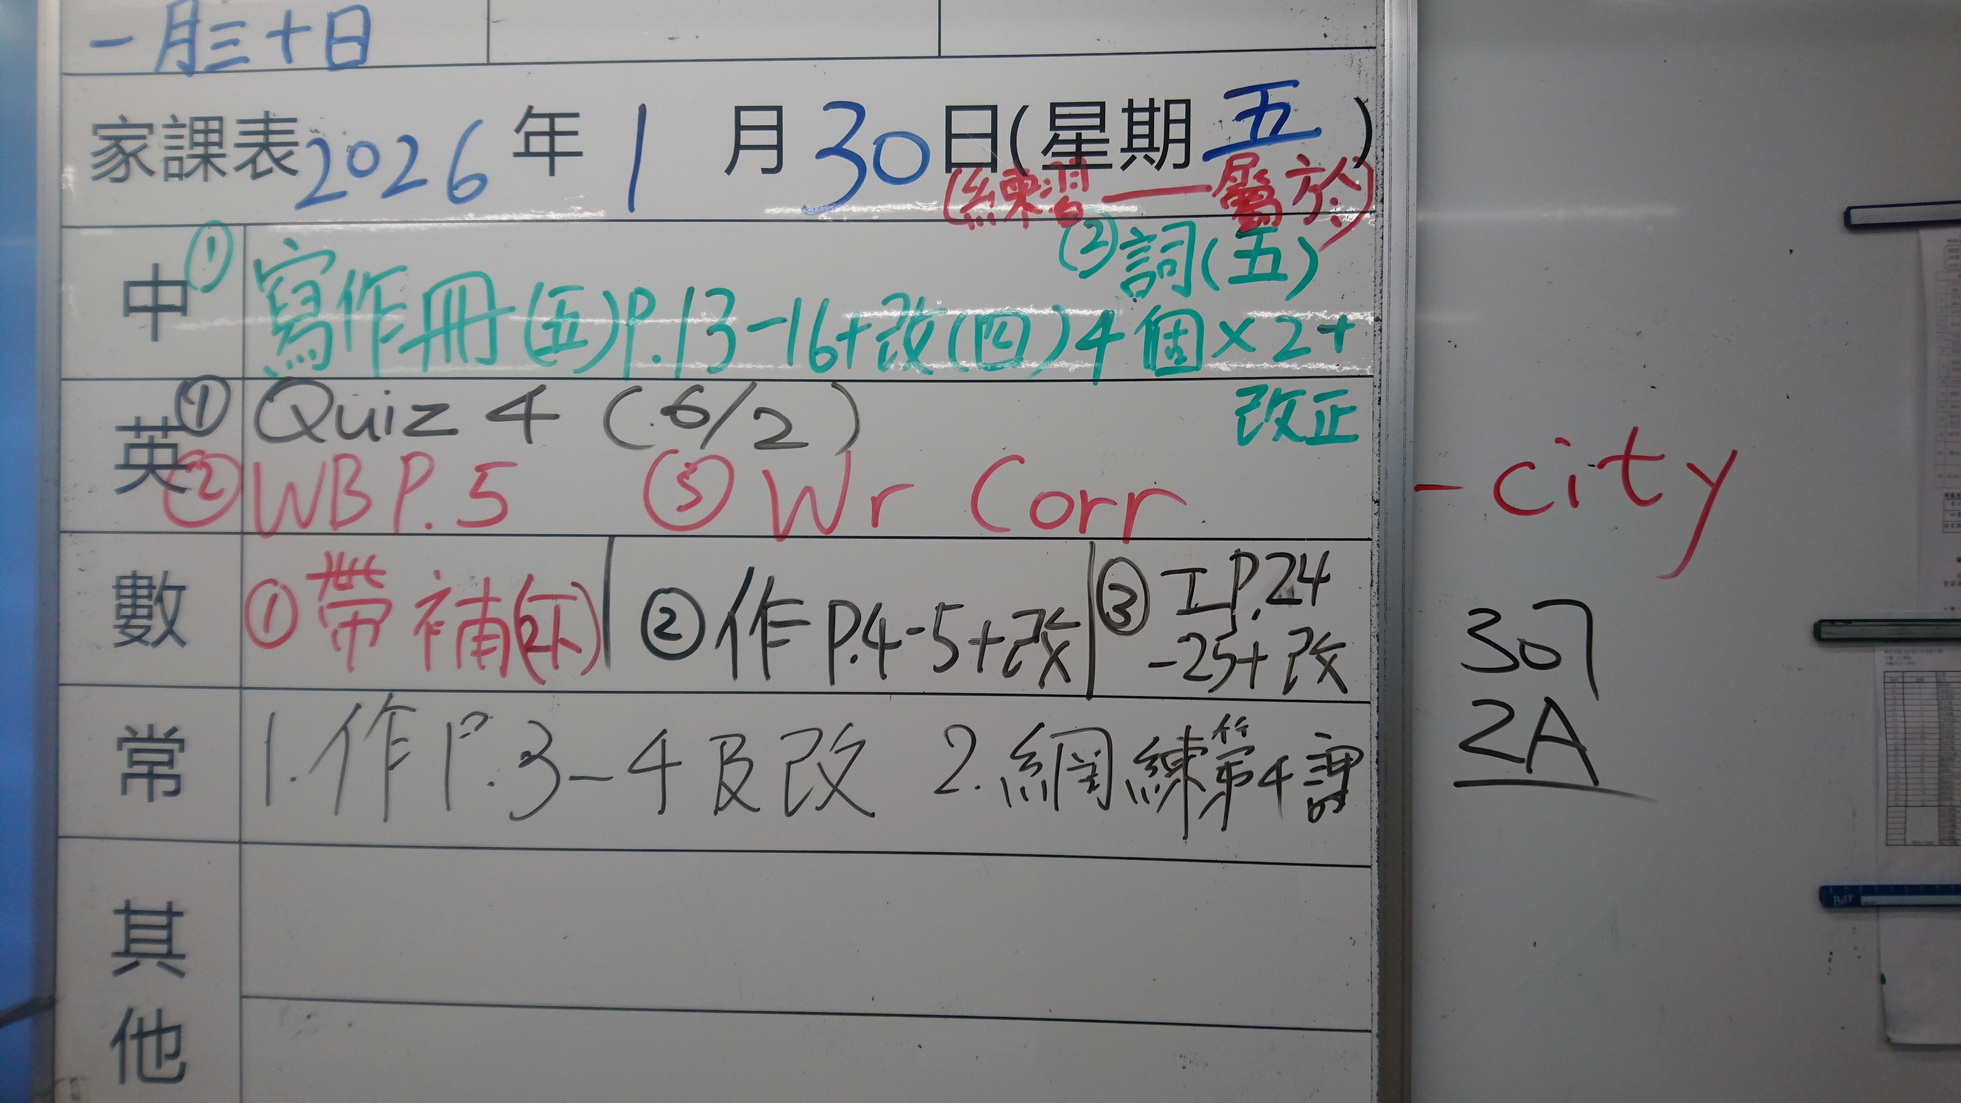 一月三十日
家課表2026年1月30日(星期五)
(練習——屬於)
中 ①寫作冊(五)P.13-16+改(四)4個×2+改正
②詞(五)
英 ①Quiz 4 (6/2)
②WB P.5 ③Wr Corr
-city
數 ①帶補(2下) ②作P.4-5+改 ③工P.24-25+改
307
2A
常 1.作P.3-4及改 2.網練第4課
其他